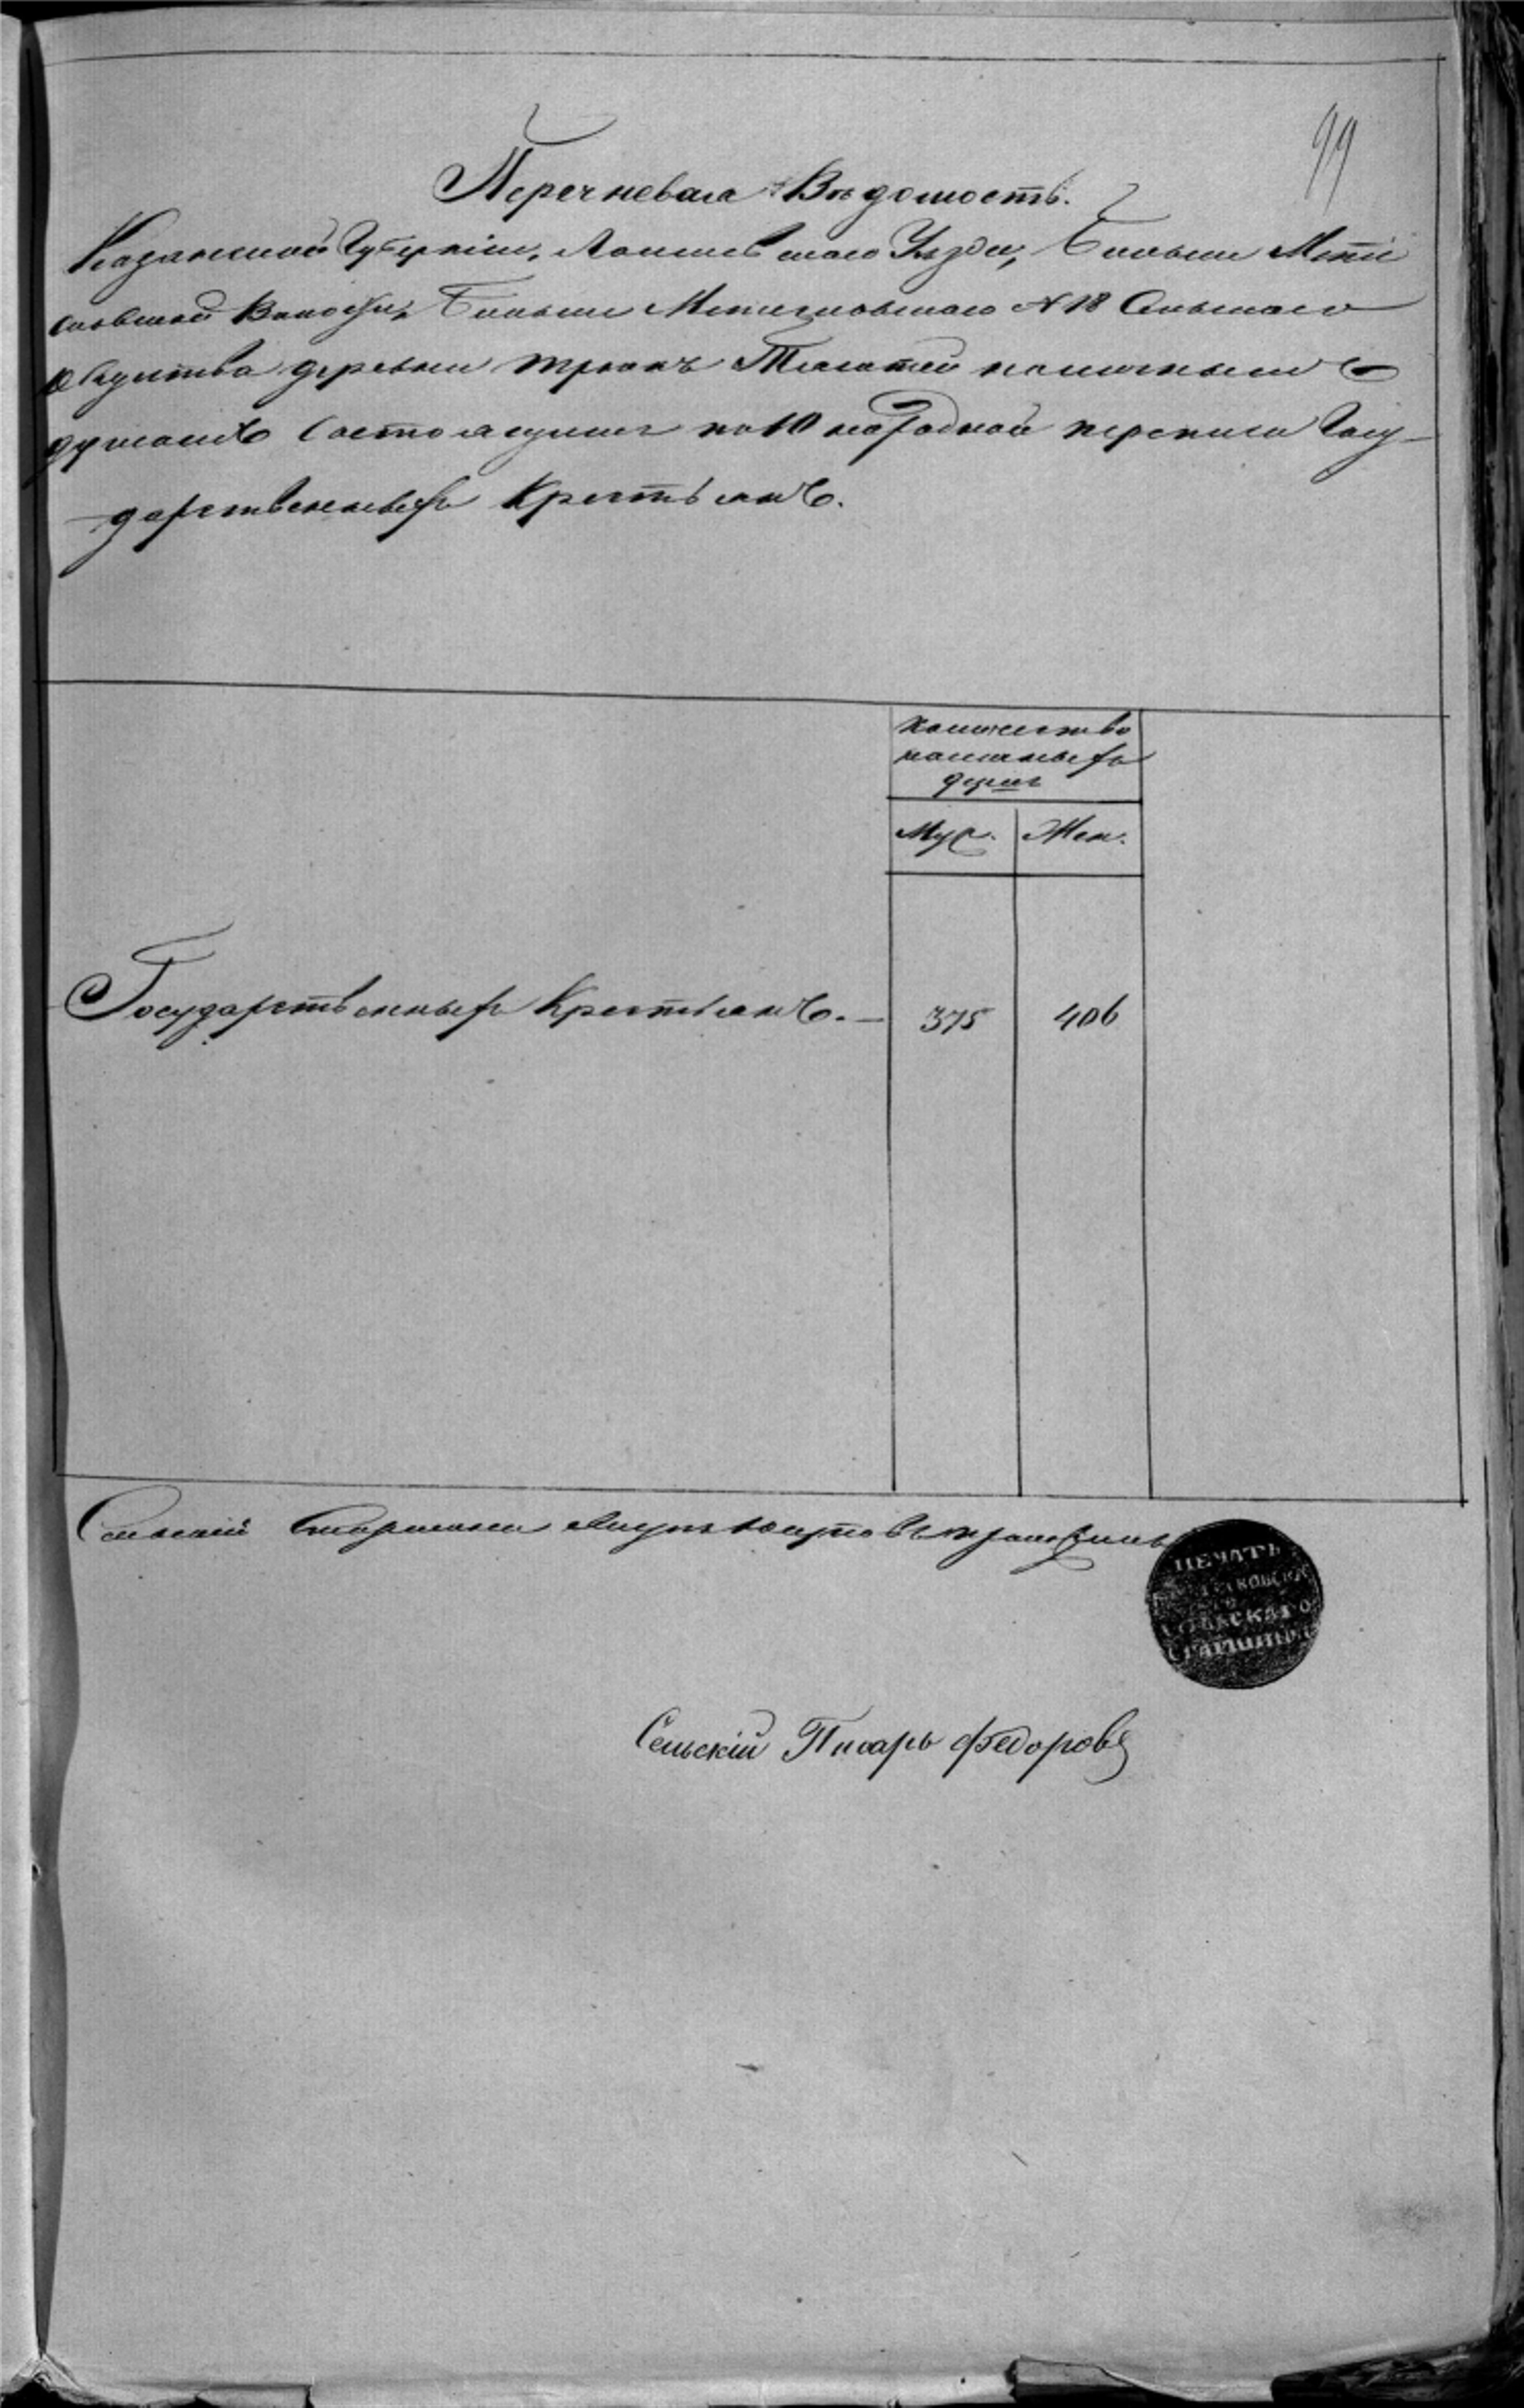 99
Перечневая Вѣдомость.
Казанской Губерніи, Лаишевскаго Уѣзда, Больше Мети
сковской Волости, Больше Метисковскаго № 18 Сельскаго
Общества деревни наличнымъ
душамъ состоящимъ по 10 народной переписи Госу-
дарственныхъ Крестьянъ.
Количество
наличныхъ
душъ
Муж. Жен.
Государственныхъ Крестьянъ. — 375 406
Сельскій Старшина
ПЕЧАТЬ
СЕЛЬСКАГО
СТАРШИНЫ
Сельскій Писарь Федоровъ